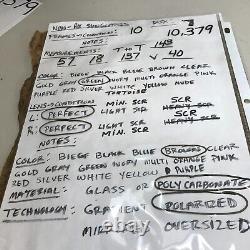 NON-RX SUNGLASSES
FRAMES → CONDITION: 10 10,379
NOTES:
MEASUREMENTS: T to T 148
57 18 137 40
COLOR: BIEGE BLACK BLUE BROWN CLEAR
GOLD GRAY GREEN IVORY MULTI ORANGE PINK
PURPLE RED SILVER WHITE YELLOW NUDE
TORTOISE
LENS → CONDITION: MIN. SCR. SCR
L: PERFECT LIGHT SCR HEAVY SCR
R: PERFECT MIN. SCR. SCR
LIGHT SCR HEAVY SCR
NOTES:
COLOR: BIEGE BLACK BLUE BROWN CLEAR
GOLD GRAY GREEN IVORY MULTI ORANGE PINK
RED SILVER WHITE YELLOW PURPLE
MATERIAL: GLASS OR POLYCARBONATE
TECHNOLOGY: GRADIENT POLARIZED
OVERSIZED